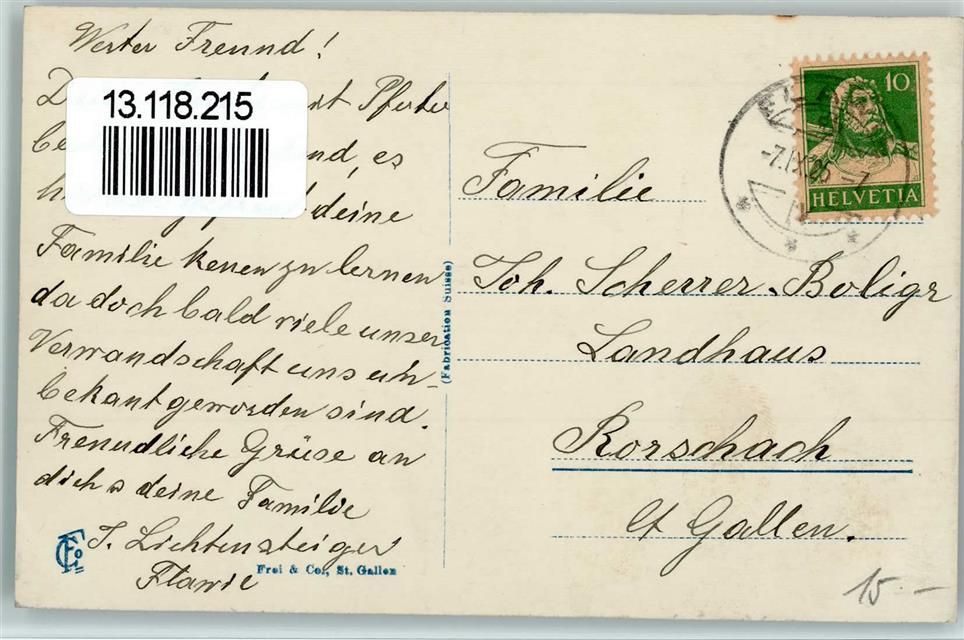 Werter Freund!
13.118.215
Pferter
es
deine
Familie kenen zu lernen
da doch bald viele unser
Verwandschaft uns un-
bekant geworden sind.
Freundliche Grüse an
dich & deine Familie
J. Lichtensteiger
Flawil
Frei & Co., St. Gallen
(Fabrication Suisse)
10
HELVETIA
Familie
Joh. Scherrer-Boligr
Landhaus
Rorschach
St Gallen.
15.-